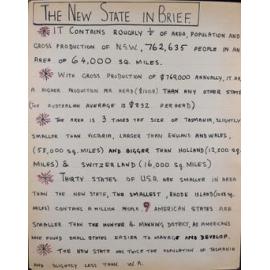 THE NEW STATE IN BRIEF.
IT CONTAINS ROUGHLY OF AREA, POPULATION AND
GROSS PRODUCTION OF N.S.W., 762,635 PEOPLE IN AN
AREA OF 64,000 SQ. MILES.
WITH GROSS PRODUCTION OF ANNUALLY, IT HAS
A HIGHER PRODUCTION PER HEAD THAN ANY OTHER STATE
(THE AUSTRALIAN AVERAGE IS PER HEAD)
THE AREA IS 3 TIMES THE SIZE OF TASMANIA, SLIGHTLY
SMALLER THAN VICTORIA, LARGER THAN ENGLAND AND WALES,
(58,000 SQ. MILES) AND BIGGER THAN HOLLAND SQ.
MILES) & SWITZERLAND (16,000 SQ. MILES)
THIRTY STATES OF USA ARE SMALLER IN AREA
THAN THE NEW STATE, THE SMALLEST, RHODE ISLAND
MILES) CONTAINS A MILLION PEOPLE. 9 AMERICAN STATES ARE
SMALLER THAN THE HUNTER & MANNING DISTRICT, AS AMERICANS
HAVE FOUND SMALL STATES EASIER TO MANAGE AND DEVELOP.
THE NEW STATE HAS TWICE THE POPULATION OF TASMANIA
AND SLIGHTLY LESS THAN W.A.